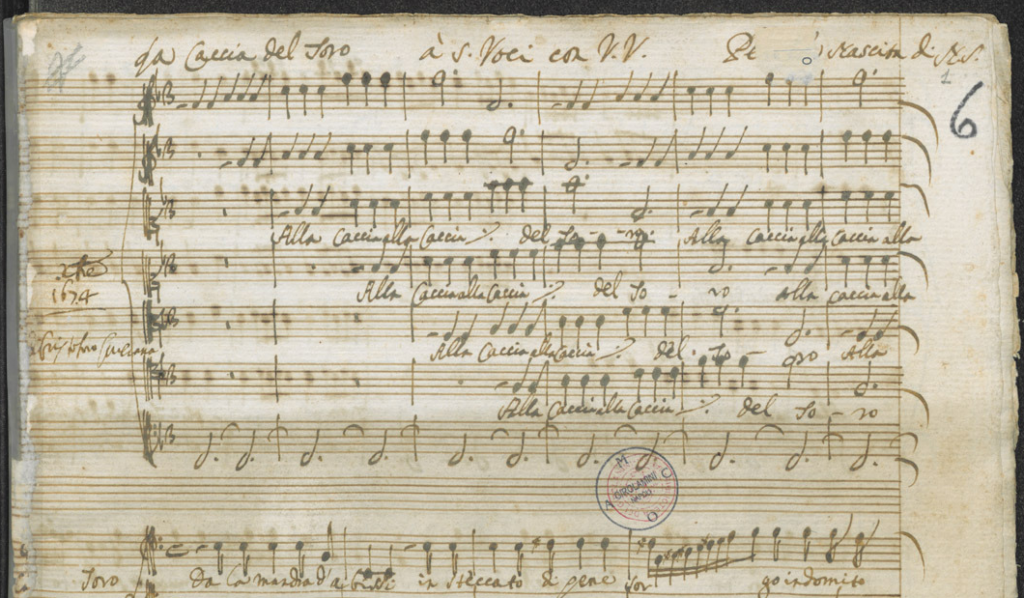 La Caccia del Toro à 5. Voci con V.V. Pe Nascita di N.S.
1
6
Alla Caccia alla Caccia del To - ro Alla caccia alla caccia alla
1674
Alla Caccia alla Caccia del To - ro alla caccia alla
Alla Caccia alla Caccia del To - ro Alla
Alla Caccia alla Caccia del To - ro
GIROLAMINI
Toro da la mandra d' in steccato di gene ror go indomito